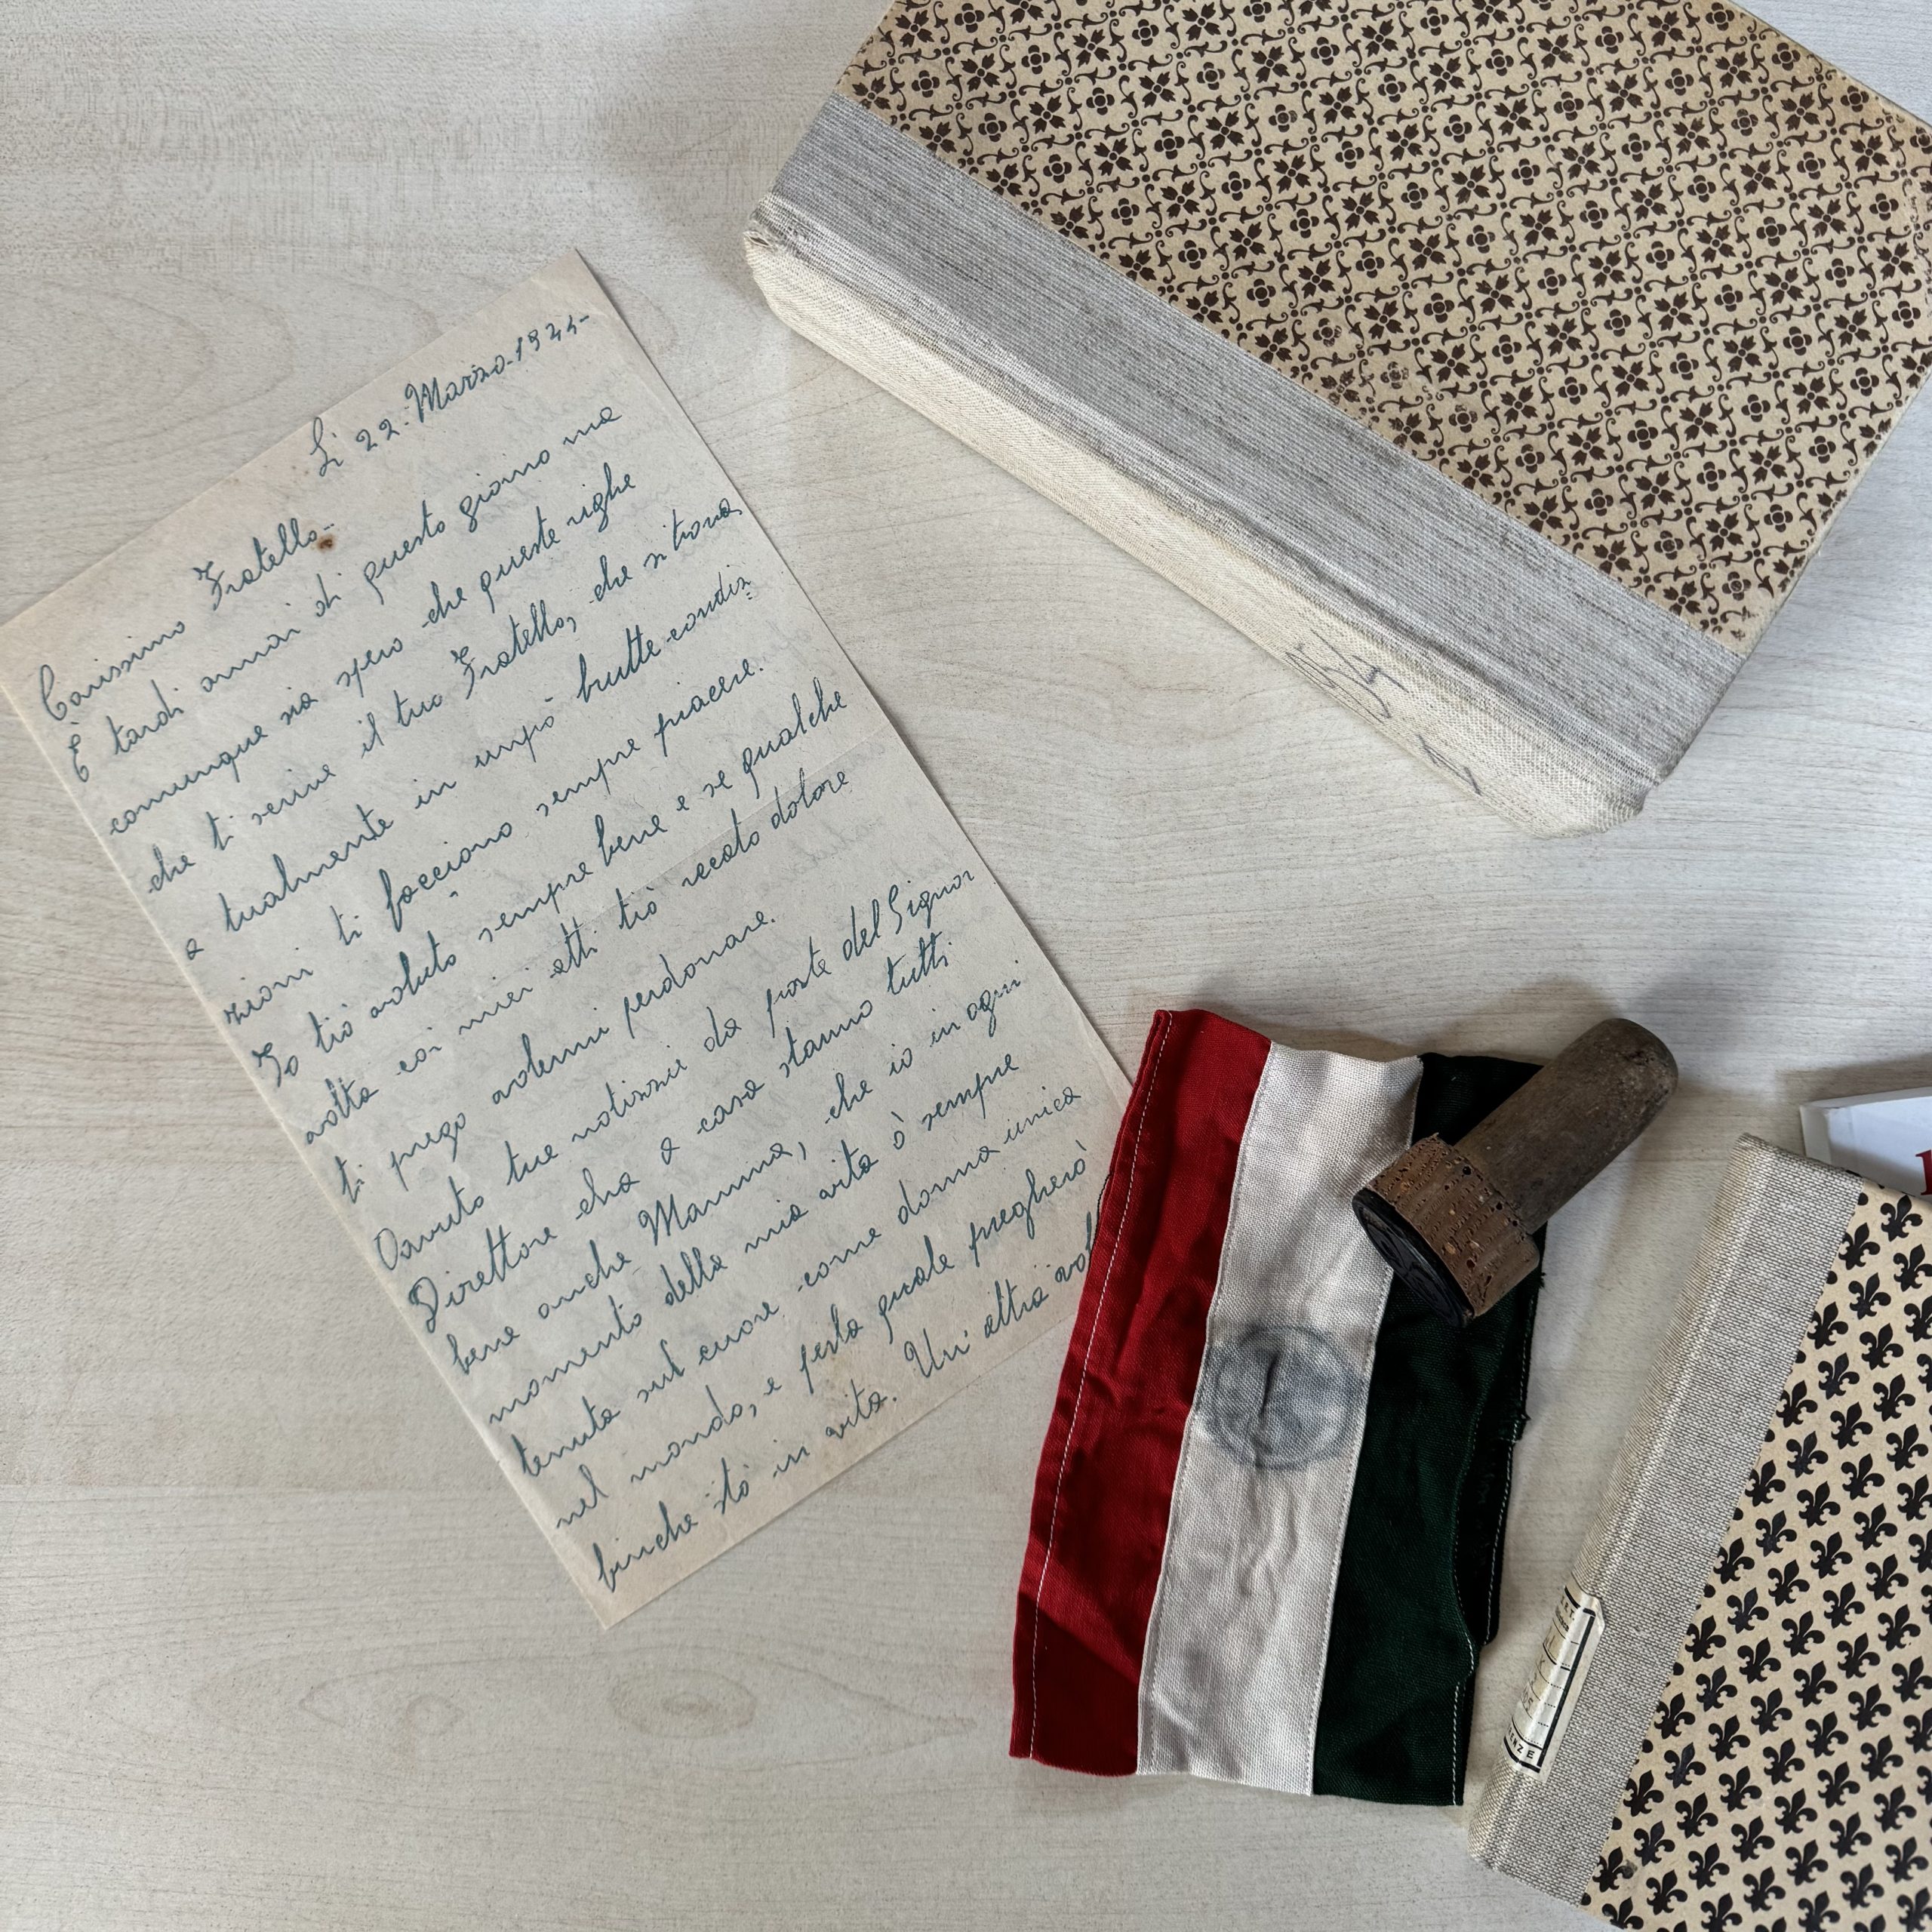 Li 22-Marzo-1944-
Carissimo Fratello-
È tardi ormai di questo giorno ma
comunque sia spero che queste righe
che ti scrive il tuo Fratello, che si trova
a tualmente in unpò brutte condiz
zioni ti facciano sempre piacere.
Io tiò voluto sempre bene e se qualche
volta coi miei atti tiò recato dolore
ti prego volermi perdonare.
Oavuto tue notizzie da parte del Signor
Direttore che a casa stanno tutti
bene anche Mamma, che io in ogni
momento della mia vita ò sempre
tenuta sul cuore come donna unica
nel mondo, e perla quale pregherò
finche stò in vita. Un' altra vol